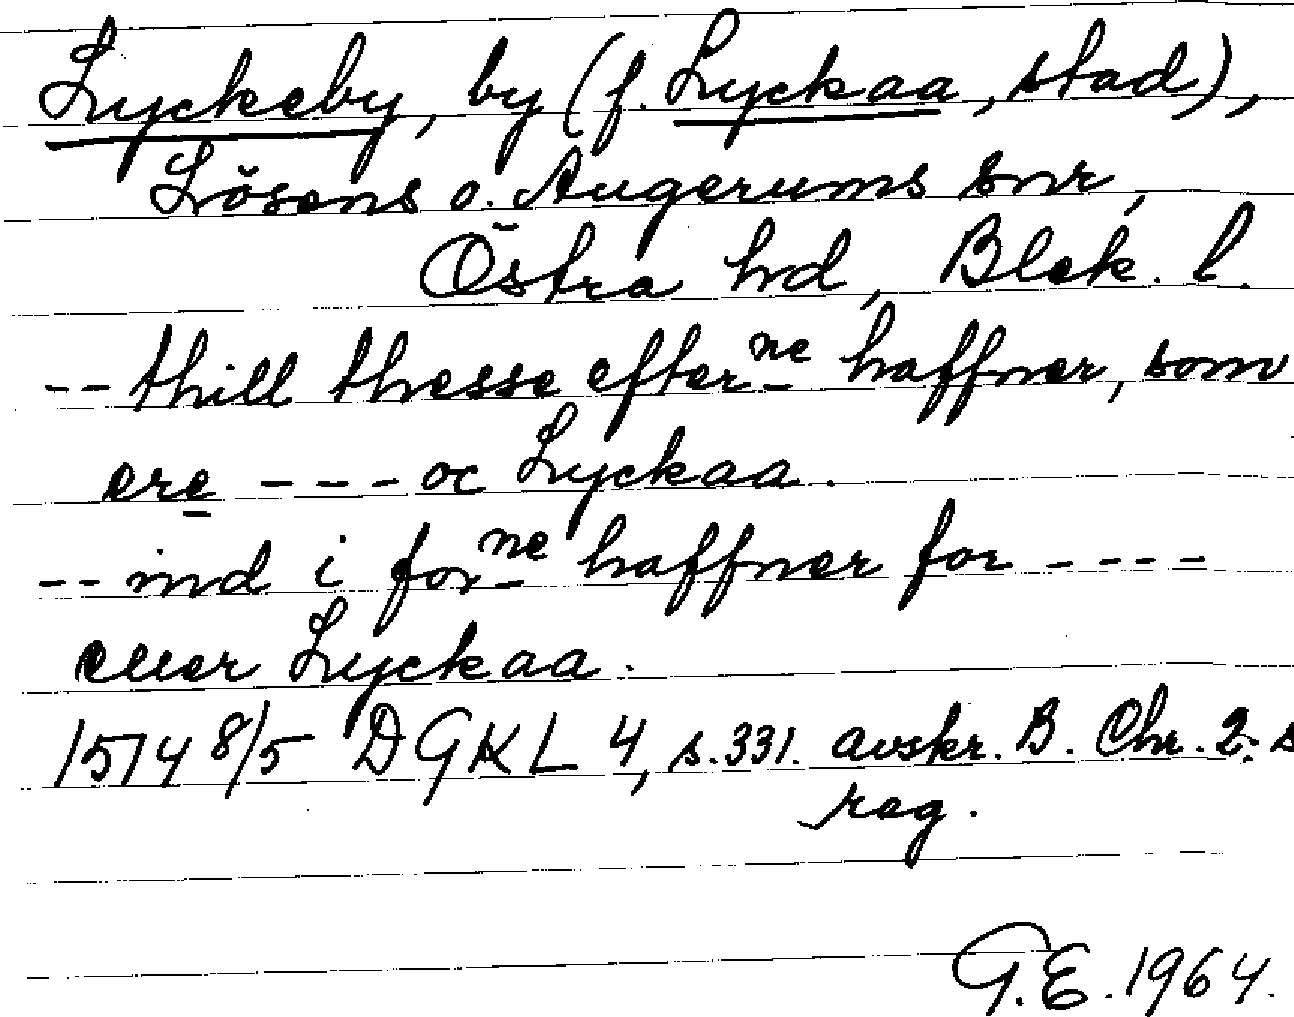 Lyckeby, by (f. Lyckaa, stad),
Lösens o. Augerums snr,
Östra hd, Blek. l.
-- thill thesse efterne haffner, som
ere --- oc Lyckaa.
-- ind i forne haffner for ----
eller Lyckaa.
1514 8/5 DGKL 4, s.331. avskr. B. Chr. 2:s
reg.
G.E. 1964.